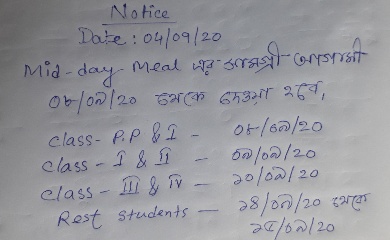 Notice
Date: 04/09/20
Mid-day-Meal এর সামগ্রী আগামী
০৮/০৯/20 থেকে দেওয়া হবে,
Class- P.P & I - ০৮/০৯/20
Class - I & II - ০৯/০৯/20
Class - III & IV - ১০/০৯/20
Rest Students - ১৪/০৯/20 থেকে
১৫/০৯/20